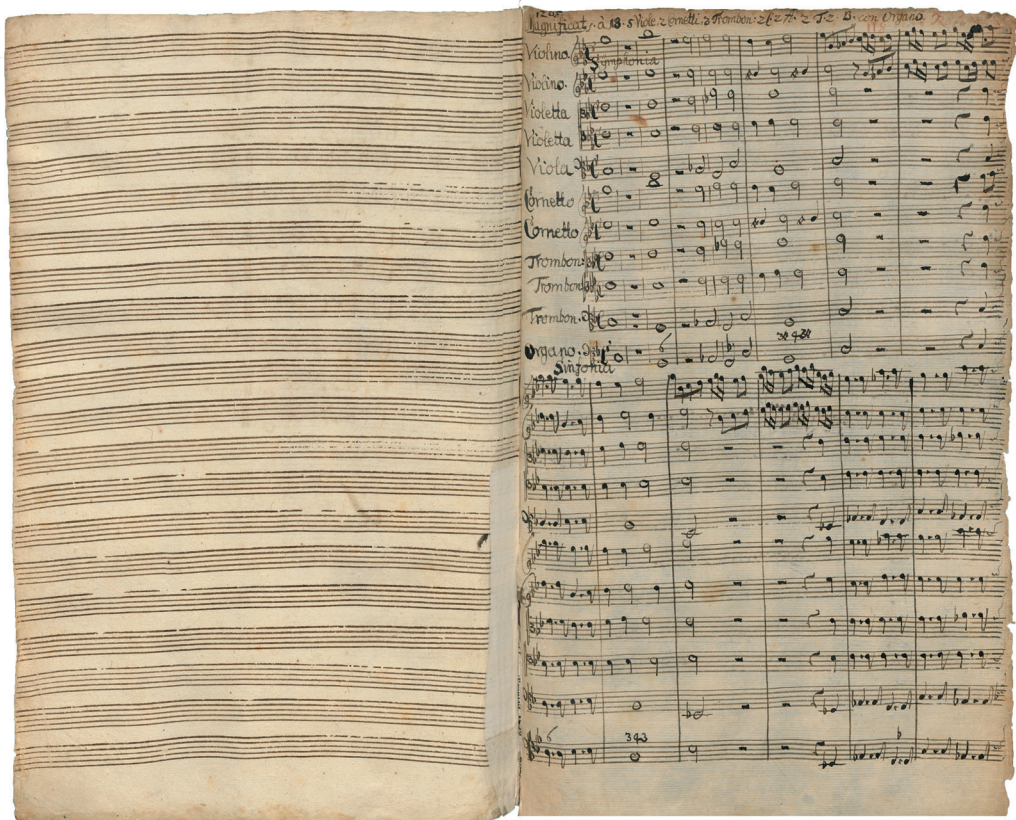 Magnificat. à 18. 5 Viole. 2 Cornetti. 3 Trombon. 2 C. 2 A. 2 T. 2 B. con Organo
Violino
Symphonia
Violino.
Violetta
Violetta
Viola
Cornetto
Cornetto
Trombon:
Trombon
Trombon.
6
Organo.
Sinfonia
6
343